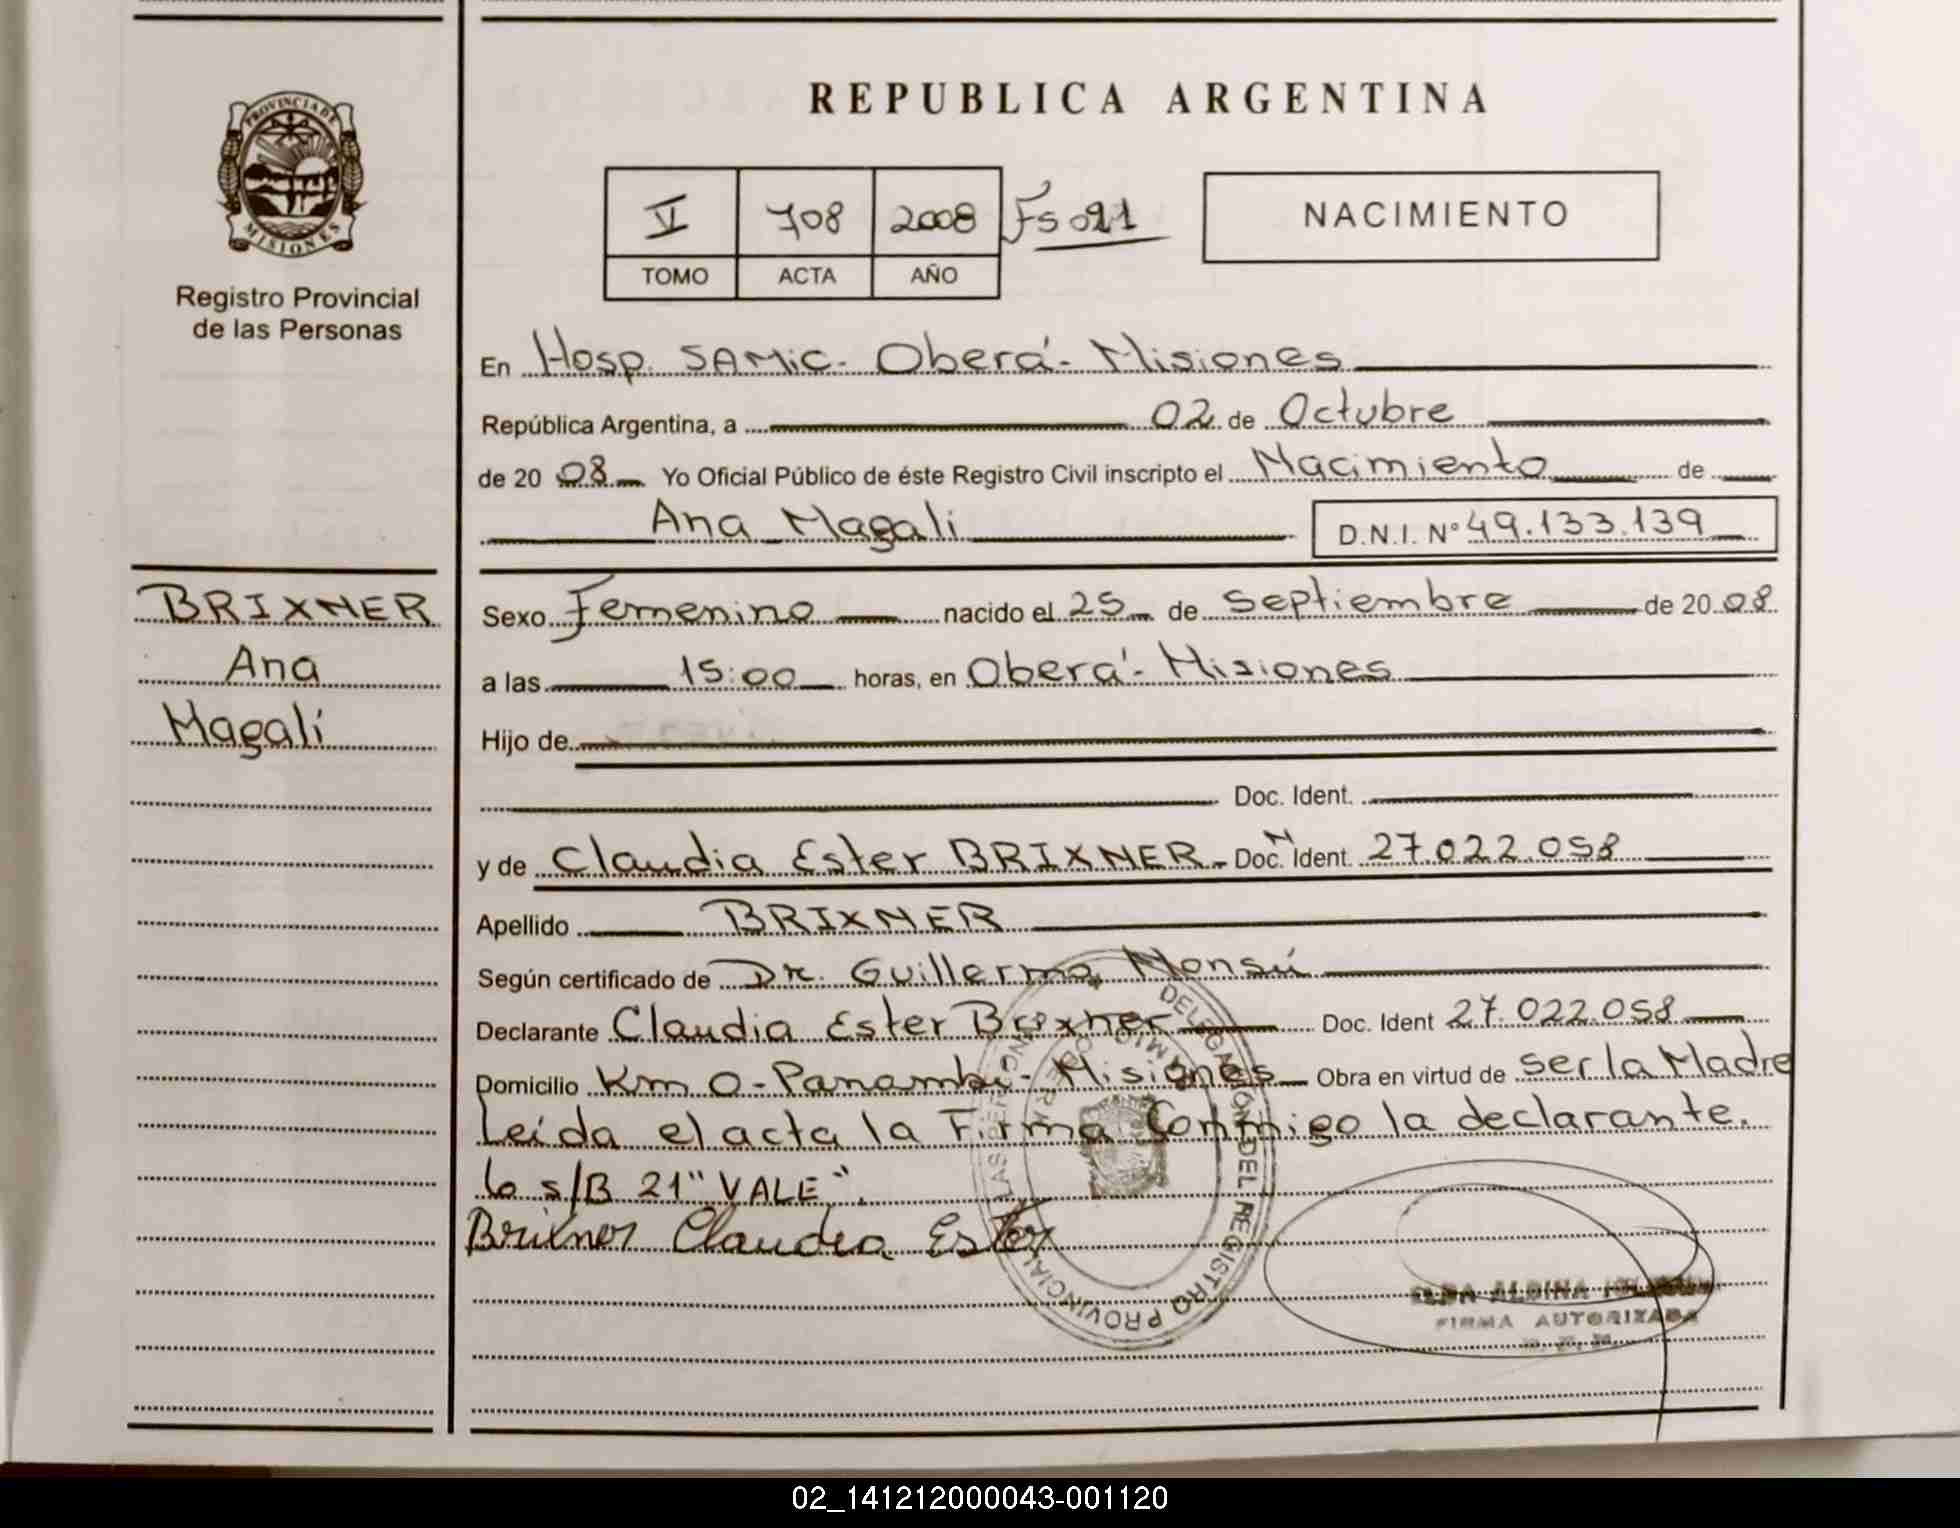 REPUBLICA ARGENTINA
PROVINCIA DE
MISIONES
Registro Provincial
de las Personas
V 708 2008 Fs 021
TOMO ACTA AÑO
NACIMIENTO
En Hosp. SAMiC - Oberá - Misiones
República Argentina, a 02 de Octubre
de 20 08 Yo Oficial Público de éste Registro Civil inscripto el Nacimiento de
Ana Magalí D.N.I. Nº 49.133.139
BRIXNER
Ana
Magalí
Sexo Femenino nacido el 25 de Septiembre de 20 08
a las 15:00 horas, en Oberá - Misiones
Hijo de
Doc. Ident.
y de Claudia Ester BRIXNER - Doc. N Ident. 27.022.058
Apellido BRIXNER
Según certificado de Dr. Guillermo Monsú
Declarante Claudia Ester Brixner Doc. Ident 27.022.058
Domicilio Km 0 - Panambí - Misiones Obra en virtud de ser la Madre
Leída el acta la Firma Conmigo la declarante.
lo s/B 21 "VALE".
Brixner Claudia Ester
DELEGACIÓN DEL REGISTRO PROVINCIAL DE LAS PERSONAS
FIRMA AUTORIZADA
02_141212000043-001120